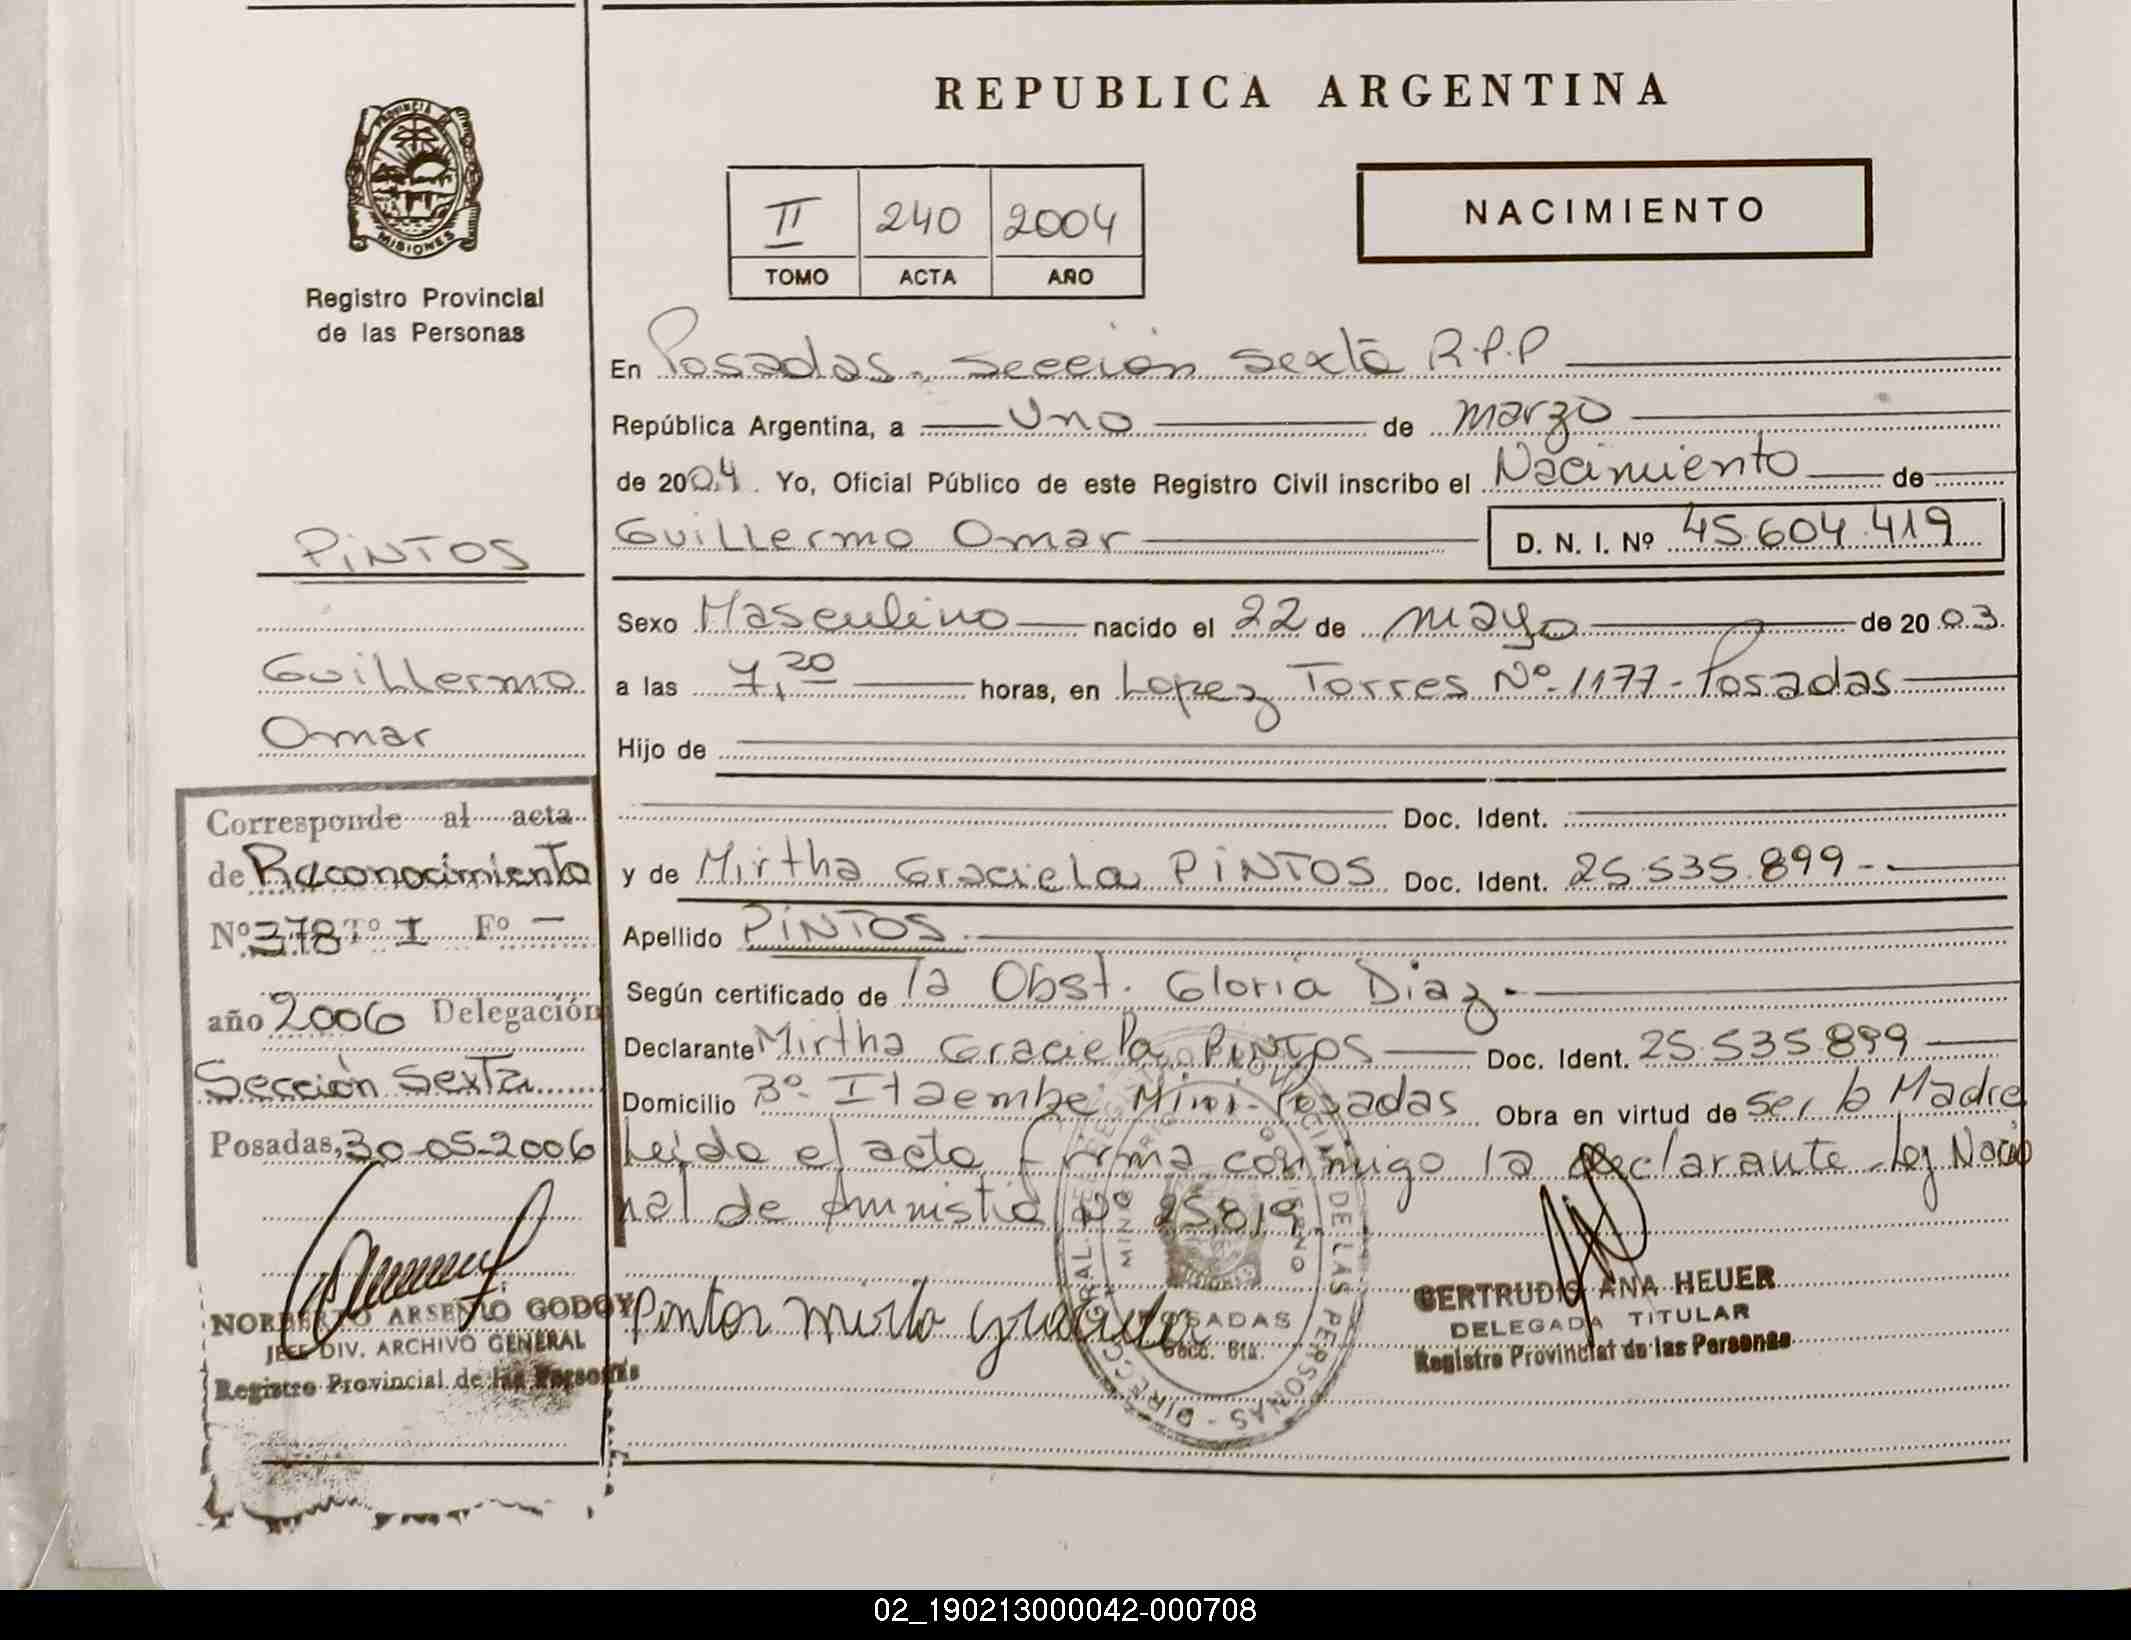 REPUBLICA ARGENTINA
PROVINCIA D
MISIONES
Registro Provincial
de las Personas
II 240 2004
TOMO ACTA AÑO
NACIMIENTO
En Posadas - Sección Sexta R.P.P
República Argentina, a Uno de marzo
de 2004. Yo, Oficial Público de este Registro Civil inscribo el Nacimiento de
Guillermo Omar D. N. I. Nº 45.604.419
Sexo Masculino nacido el 22 de mayo de 2003.
a las 7,20 horas, en Lopez Torres Nº 1177 - Posadas
Hijo de
Doc. Ident.
y de Mirtha Graciela PINTOS Doc. Ident. 25.535.899-
Apellido PINTOS
Según certificado de la Obst. Gloria Diaz.-
Declarante Mirtha Graciela PINTOS Doc. Ident. 25.535.899
Domicilio Bº Itaembe Mini - Posadas Obra en virtud de ser la Madre
Leida el acta firma conmigo la declarante - Ley Nacio
nal de Amnistia Nº 25.819
Pintos Mirta Graciela
GERTRUDIS ANA HEUER
DELEGADA TITULAR
Registro Provincial de las Personas
POSADAS
Secc. 6ta.
PINTOS
Guillermo
Omar
Corresponde al acta
de Reconocimiento
Nº 378 Tº I Fº -
año 2006 Delegación
Sección Sexta
Posadas, 30-05-2006
NORBERTO ARSENIO GODOY
JEFE DIV. ARCHIVO GENERAL
Registro Provincial de las Personas
02_190213000042-000708